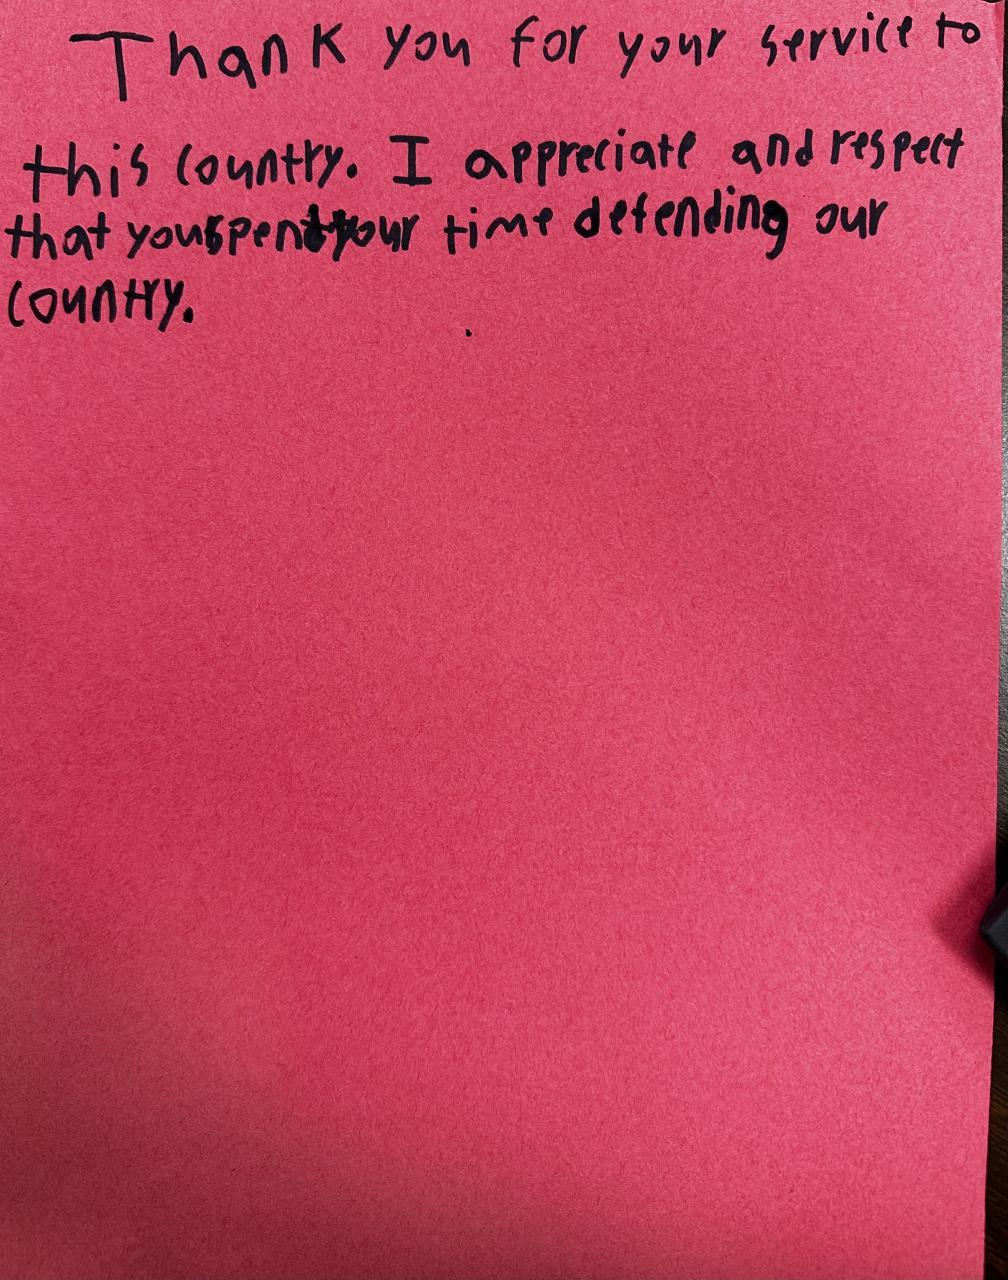 Thank you for your service to
this country. I appreciate and respect
that you spent your time defending our
country.